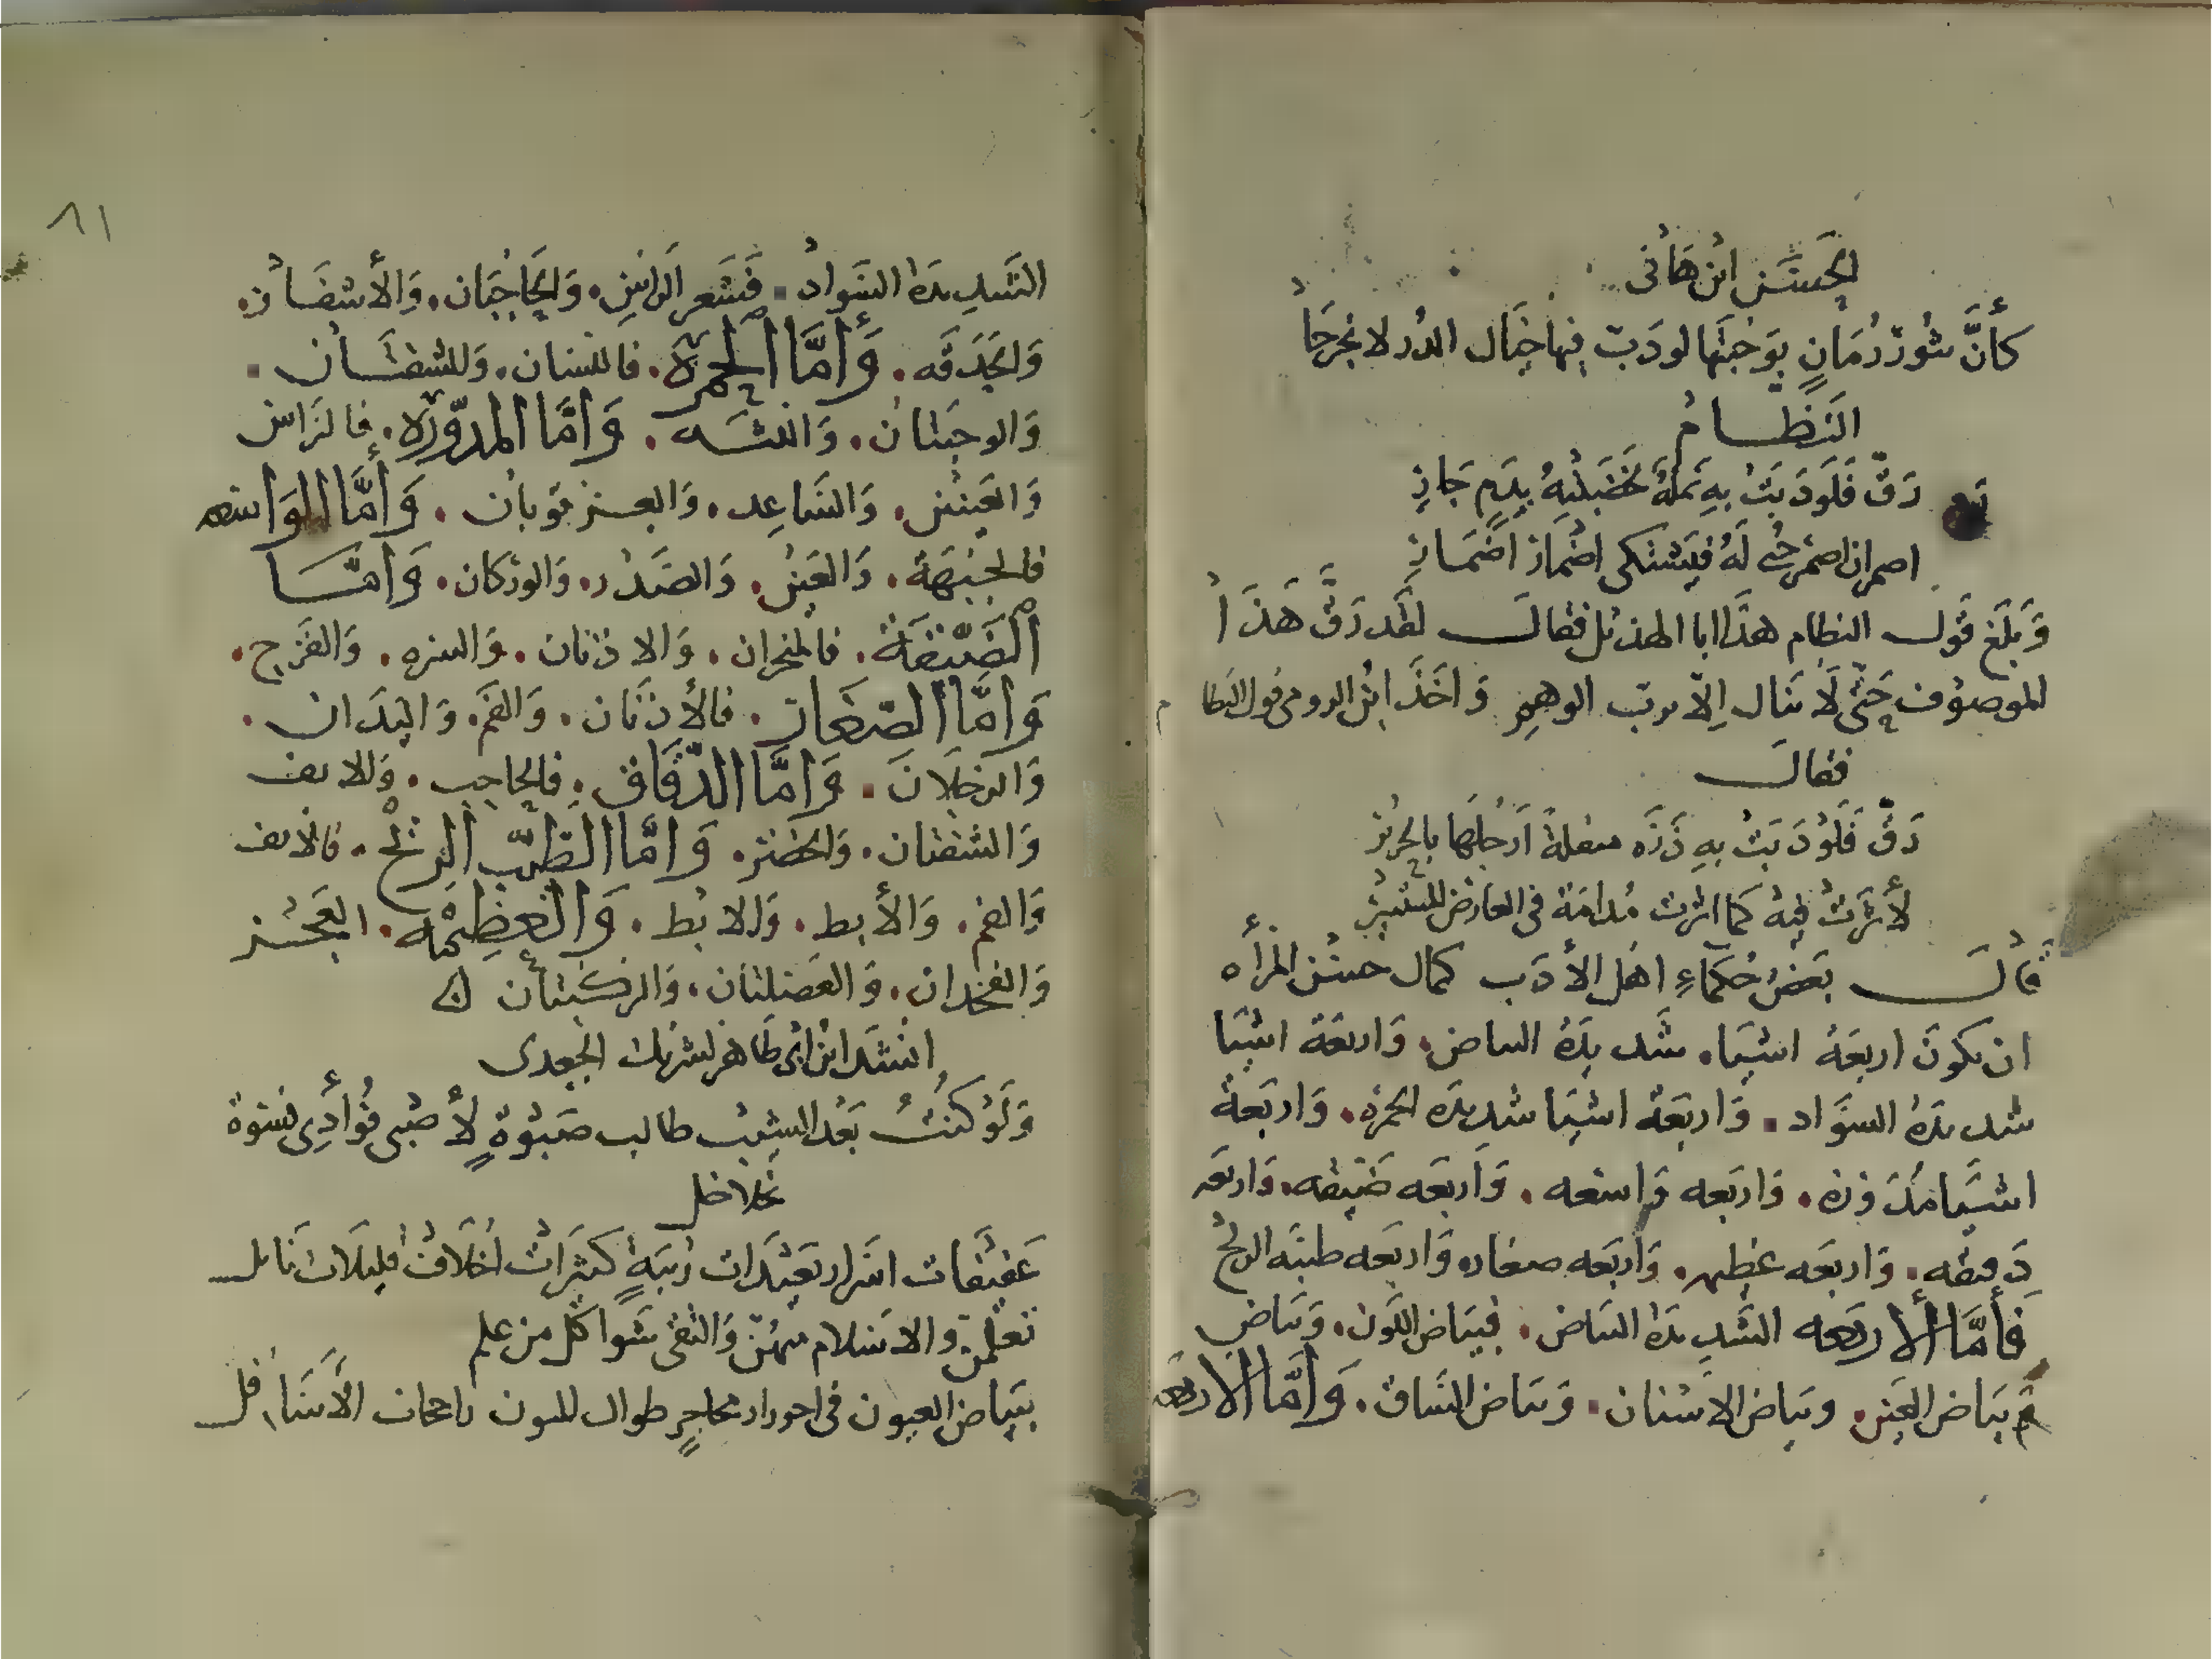 الحسن ابن هانى
كأنَّ شوذ رُمَانٍ بوَجنتَها لو دَبّ فيها خيَال الدُر لانجرحَا
النظام
رَقّ فَلَو دَبّتْ بِهِ نَملةٌ لخَضبَتْهُ بِدَمٍ جَارِ
اضمر ان اضمر حُبى لَهُ فيَشتكى اضمَار اضمَارِ
وَبلَغ قَول النظام هذَا ابا الهذيل فقال لقَد رَقّ هَذَا
الموصُوف حَتّى لَا ينَال اِلّا برب الوهم وَاخَذَ ابْن الرومى قول النظام
فقال
رَقّ فَلَوْ دَبّتْ بهِ ذَرّه منعلةٌ ارَجلهَا بالحرير
لأثرَتْ فيهْ كمَا اثرت مُدامَة فى العارض المستنير
قال بَعضُ حُكمَاءِ اهْل الأدَب كمال حسْن المرأه
ان تكونَ اربعَةُ اشيَا شديدَةُ البياض وَاربعَة اشيَا
شديدَةُ السوَاد وَاربعَة اشيَا شديدَه الحمرَه وَاربعَة
اشيَا مدَوّره وَاربَعه وَاسعه وَاربعَه ضَيّقه وَاربعَه
دَقيقه وَاربعَه عظيمه وَاربَعه صغاره وَاربَعه طيبَه الريح
فَأمَّا ألاربَعه الشَديدَة البيَاض فبيَاض اللَون وَبيَاض
وَبيَاض العَين وبياض الاسْنان وَبيَاض السَاق وَأمَّا الاربعَه
٨١
الشَديدَة السَوادْ فَشَعر الرَاسِ وَالحَاجبَان وَالأشفَان
وَالحَدقَه وَأمَّا الحمرَة فاللسَان وَالشفتَان
وَالوجنتَان وَاللثه وَامَّا المدوّرَه فالرَاس
وَالعَين وَالسَاعِد وَالعرقوبان وَأمَّا الوَاسعه
فالجَبْهَة وَالعَين وَالصَدْر وَالوركان وَامّا
الضَيّقَة فالمنخران وَالاذنان وَالسره وَالفَرج
وَامَّا الصّغَار فالأذنَان وَالفَم وَاليدَان
وَالرجلَانَ وَامَّا الدّقَاق فالحاجب وَالانف
وَالشفتان وَالخصر وَامَّا الطيّب الريح فالانف
وَالفم وَالأبط وَالابط وَالعظيمَه العَجُز
وَالفخدان وَالعَضلتان وَالركبَتأن
انشدَ ابن ابى طَاهر لشريك الجعدى
وَلَوْ كنتُ بَعْد الشيْب طالب صَبْوَةٍ لأصْبى فُؤَادِى نسْوة
خلاخل
عَفيفَات اسَرار بَعيْدَات رُيبَةٍ كثيرَاتْ اخْلَافْ قليلَات نَايل
تعَلمن والاسَلام منهُنّ وَالتقى شوَاكل من علم
بيَاض العيون فى احورار محاجر طوال المتون راجحات الأسَافل